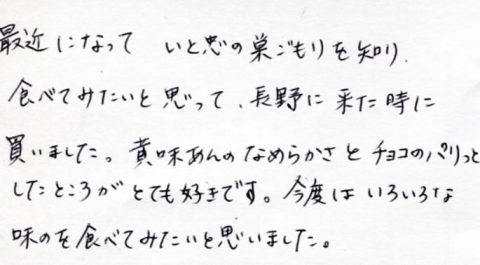 最近になって いと忠の巣ごもりを知り、
食べてみたいと思って、長野に来た時に
買いました。黄味あんのなめらかさとチョコのパリっと
したところがとても好きです。今度はいろいろな
味のを食べてみたいと思いました。